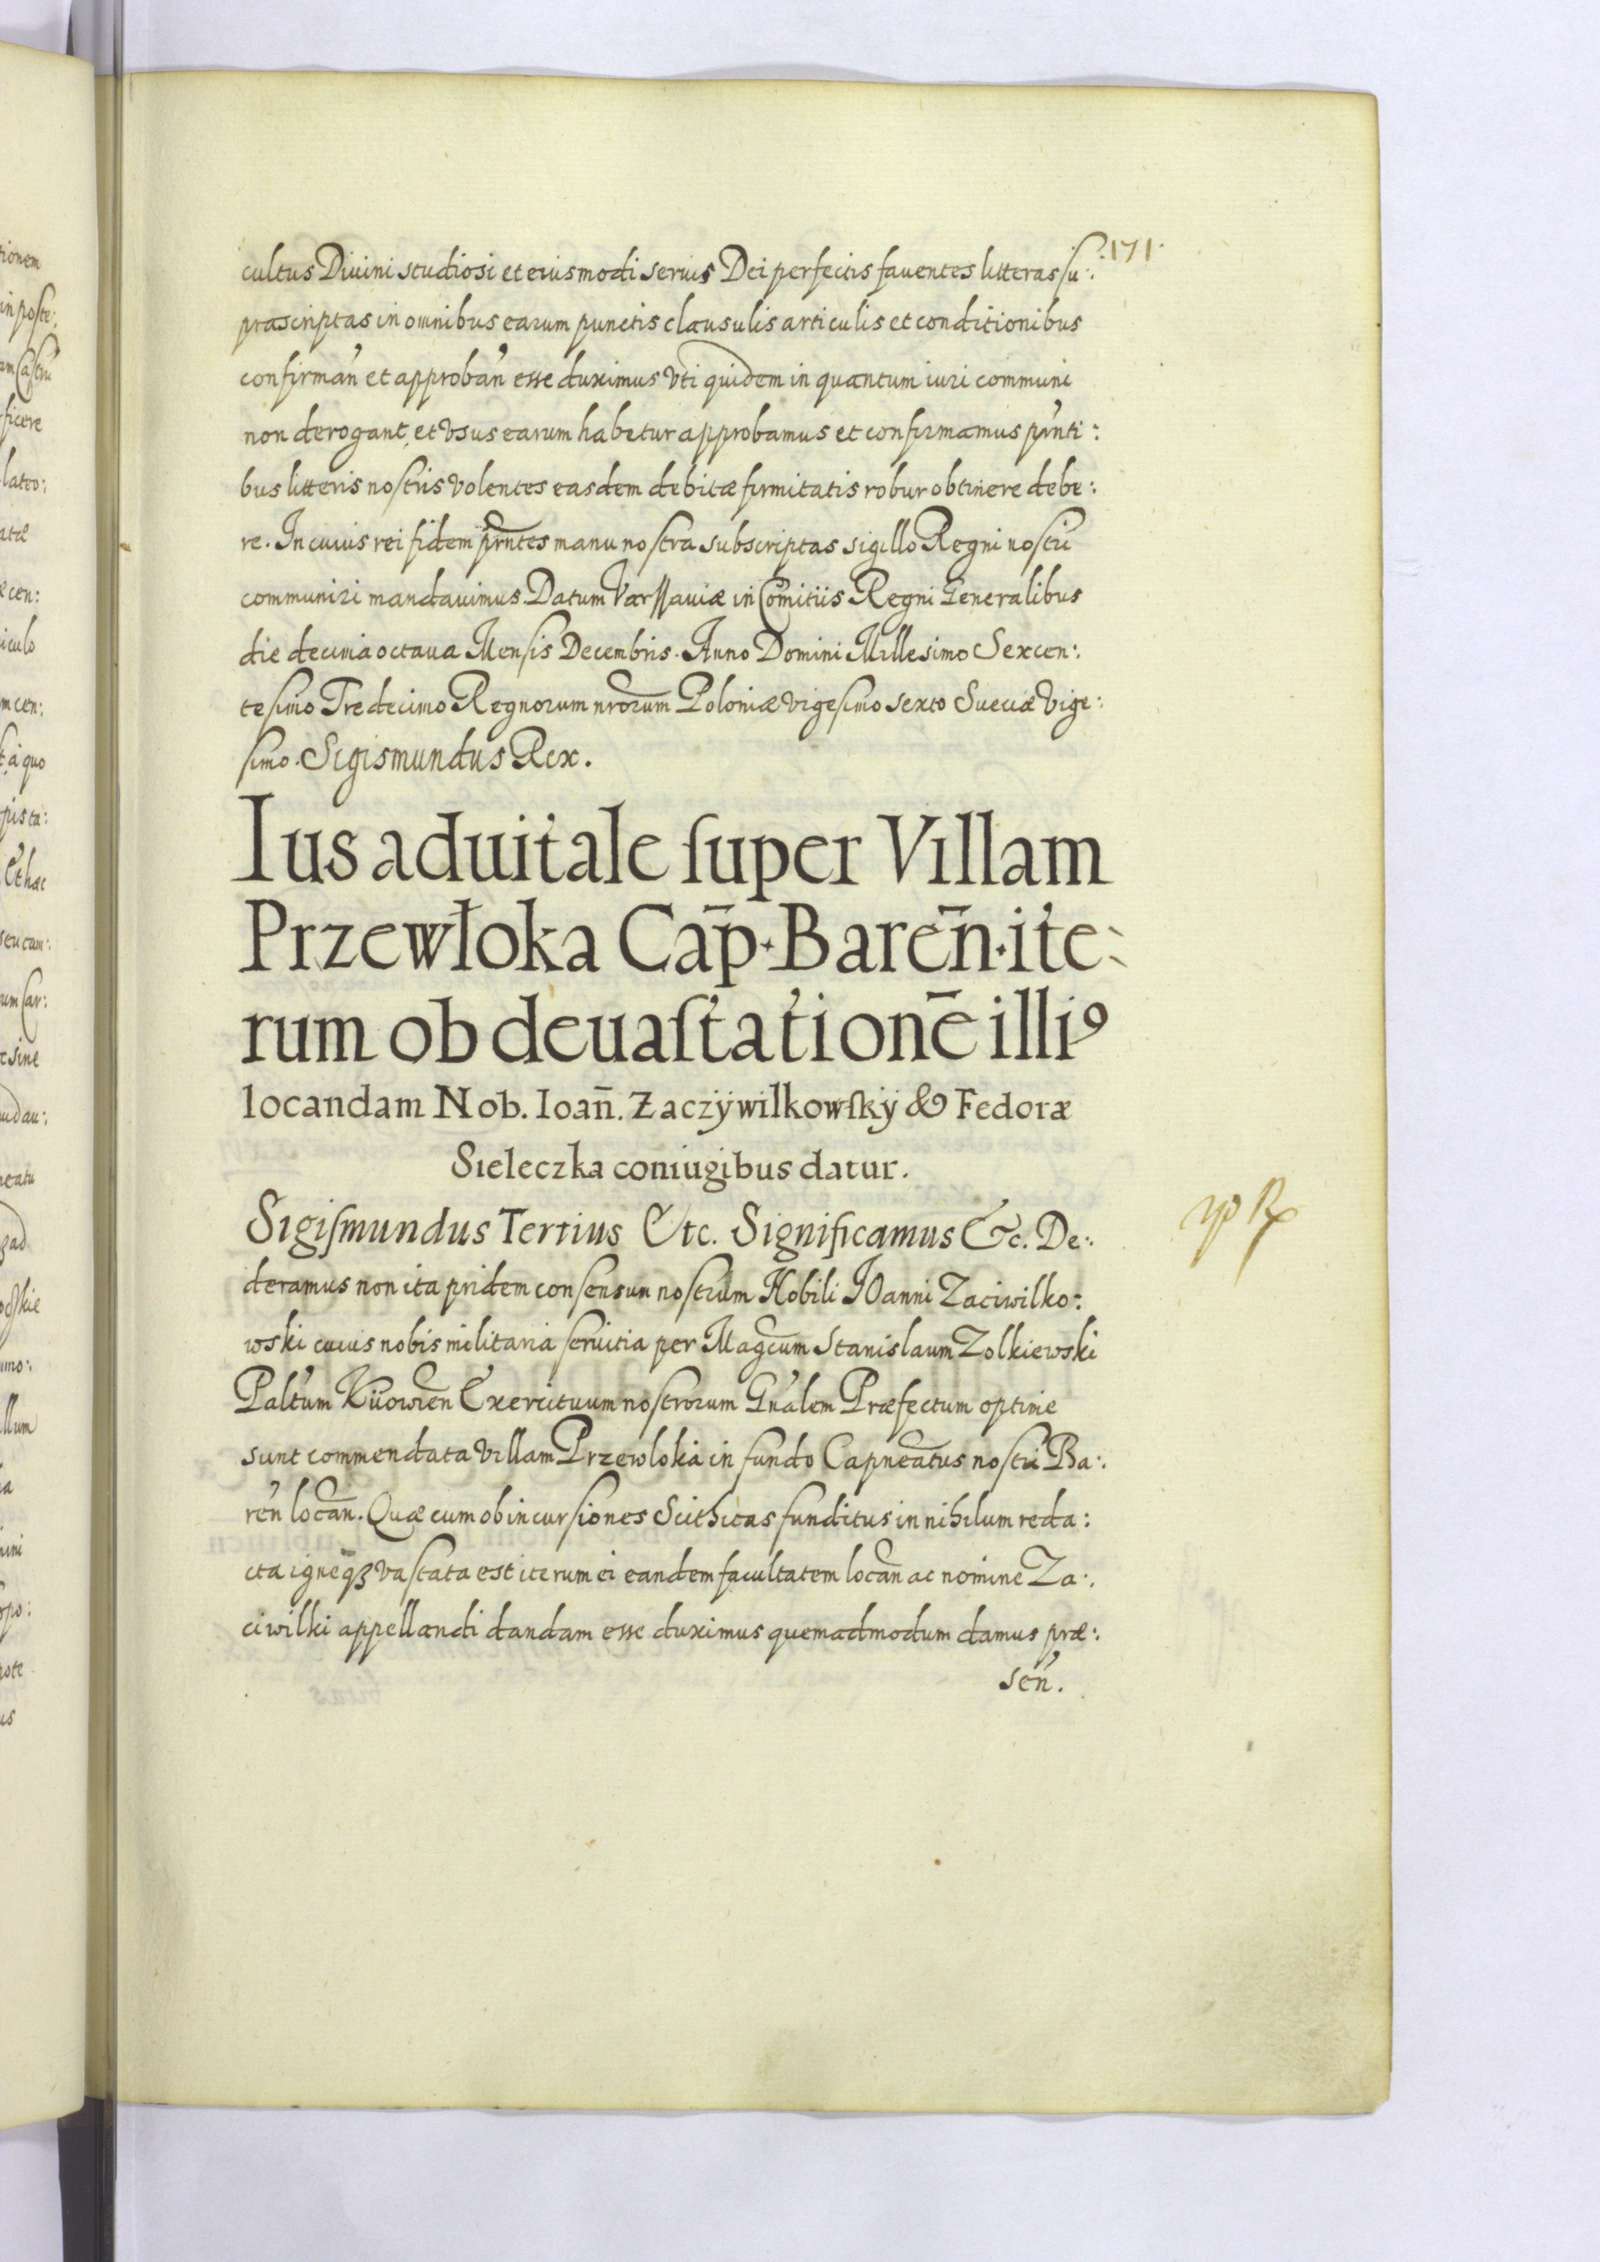 171.
cultus Diuini studiosi et eiusmodi seruis Dei perfectis fauentes litteras su:.
prascriptas in omnibus earum punctis clausulis articulis et conditionibus
confirmañ et approbañ esse duximus Vti quidem in quantum iuri communi
non derogant, et Vsus earum habetur approbamus et confirmamus prñti:
bus litteris nostris Volentes easdem debitæ firmitatis robur obtinere debe:
re. In cuius rei fidem prñtes manu nostra subscriptas sigillo Regni nostri
communiri mandauimus. Datum Varssauiæ in Comitiis Regni Generalibus
die decima octaua Mensis Decembris. Anno Domini Millesimo Sexcen:.
tesimo Tredecimo Regnorum nrõrum Poloniæ Vigesimo sexto Sueciæ Vige:
simo. Sigismundus Rex.
Ius aduitale super Villam
Przewłoka Cap̄. Bareñ. ite
rum ob deuastationē illiꝰ
locandam Nob. Ioañ. Zaczÿwilkowskÿ & Fedoræ
Sieleczka coniugibus datur.
Sigismundus Tertius Etc. Significamus &c. De:.
deramus non ita pridem consensun nostrum Nobili IOanni Zaciwilko:
wski cuius nobis militaria seruitia per Magcum Stanislaum Zolkiewski
Paltum Kiiowień Exercituum nostrorum Gnálem Præfectum optime
sunt commendata Villam Przewloka in fundo Capneatus nostri Ba:.
reń locań. Quæ cum ob incursiones Scithicas funditus in nihilum reda:
cta igneqꝫ Vastata est iterum ei eandem facultatem locań ac nomine Za:.
ciwilki appellandi dandam esse duximus quemadmodum damus præ:.
seń.